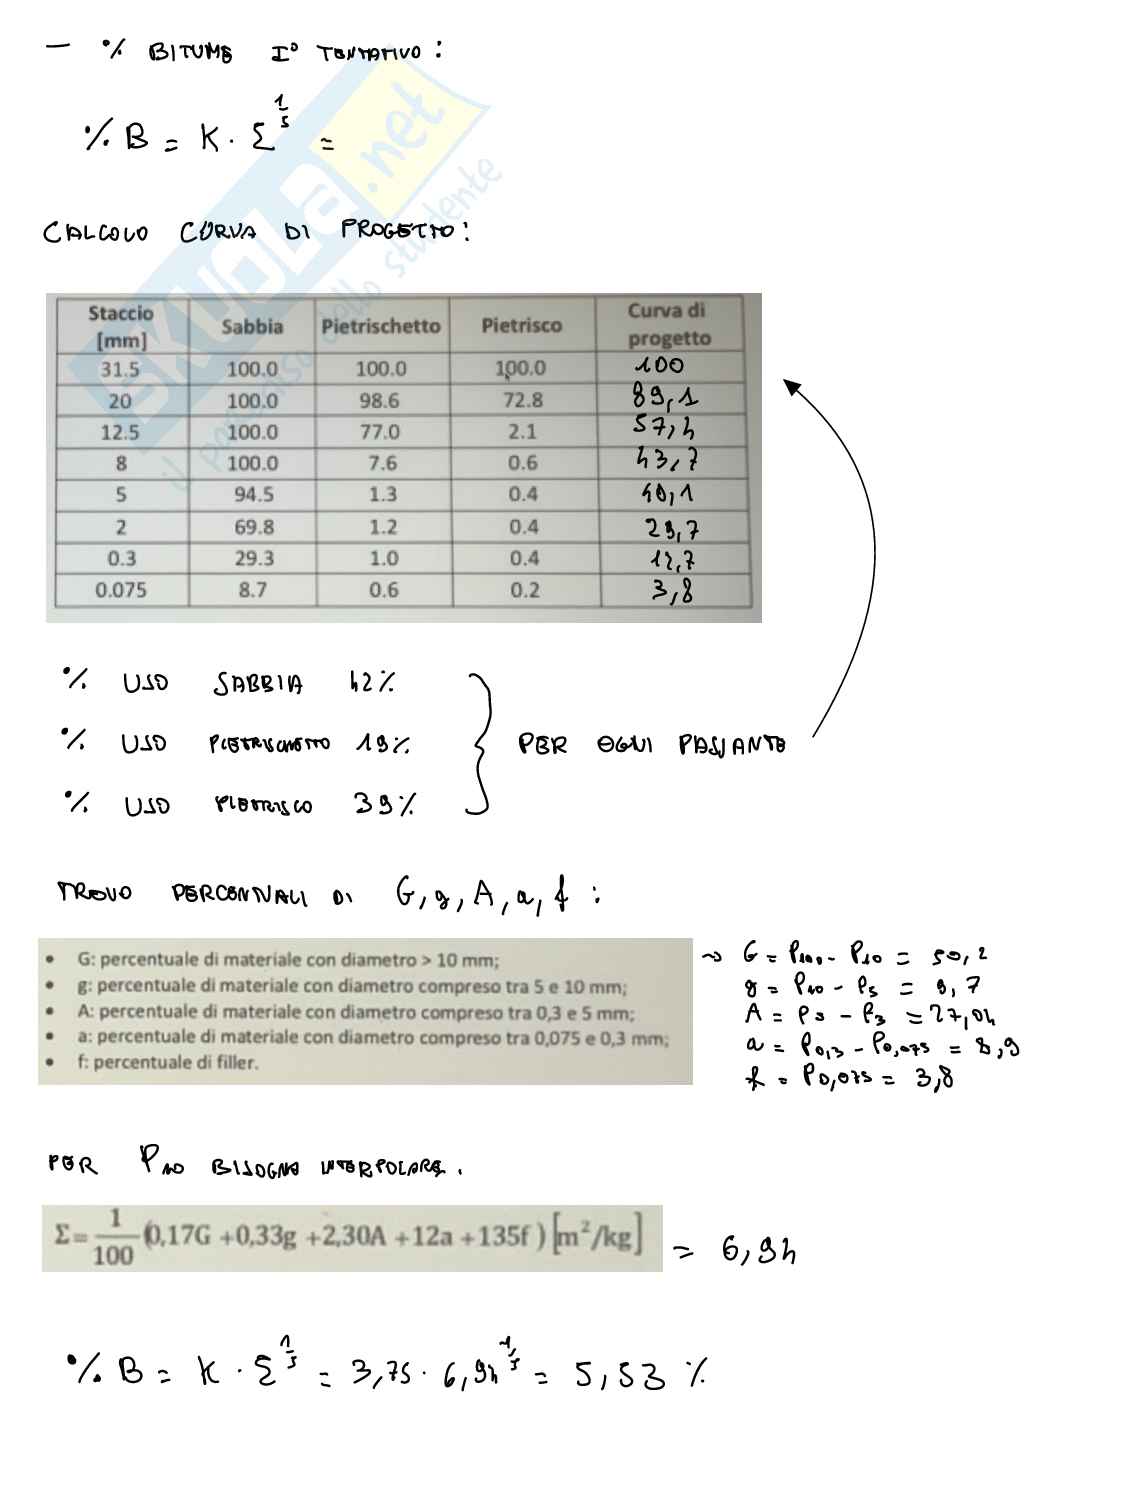 - % BITUME I° TENTATIVO:
% B = K · Σ^1/5 =
CALCOLO CURVA DI PROGETTO:
Staccio [mm] Sabbia Pietrischetto Pietrisco Curva di progetto
31.5 100.0 100.0 100.0 100
20 100.0 98.6 72.8 89,1
12.5 100.0 77.0 2.1 57,4
8 100.0 7.6 0.6 43,7
5 94.5 1.3 0.4 40,1
2 69.8 1.2 0.4 29,7
0.3 29.3 1.0 0.4 12,7
0.075 8.7 0.6 0.2 3,8
% USO SABBIA 42%
% USO PIETRISCHETTO 19% PER OGNI PASSANTE
% USO PIETRISCO 39%
TROVO PERCENTUALI DI G, g, A, a, f :
• G: percentuale di materiale con diametro > 10 mm;
• g: percentuale di materiale con diametro compreso tra 5 e 10 mm;
• A: percentuale di materiale con diametro compreso tra 0,3 e 5 mm;
• a: percentuale di materiale con diametro compreso tra 0,075 e 0,3 mm;
• f: percentuale di filler.
G = P100 - P10 = 50,2
g = P10 - P5 = 9,7
A = P5 - P3 = 27,04
a = P0,3 - P0,075 = 8,9
f = P0,075 = 3,8
PER P10 BISOGNA INTERPOLARE.
Σ = 1/100 (0,17G + 0,33g + 2,30A + 12a + 135f ) [m²/kg] = 6,94
% B = K · Σ^1/5 = 3,75 · 6,94^1/5 = 5,53 %
SKUOLA.net
il paradiso dello studente